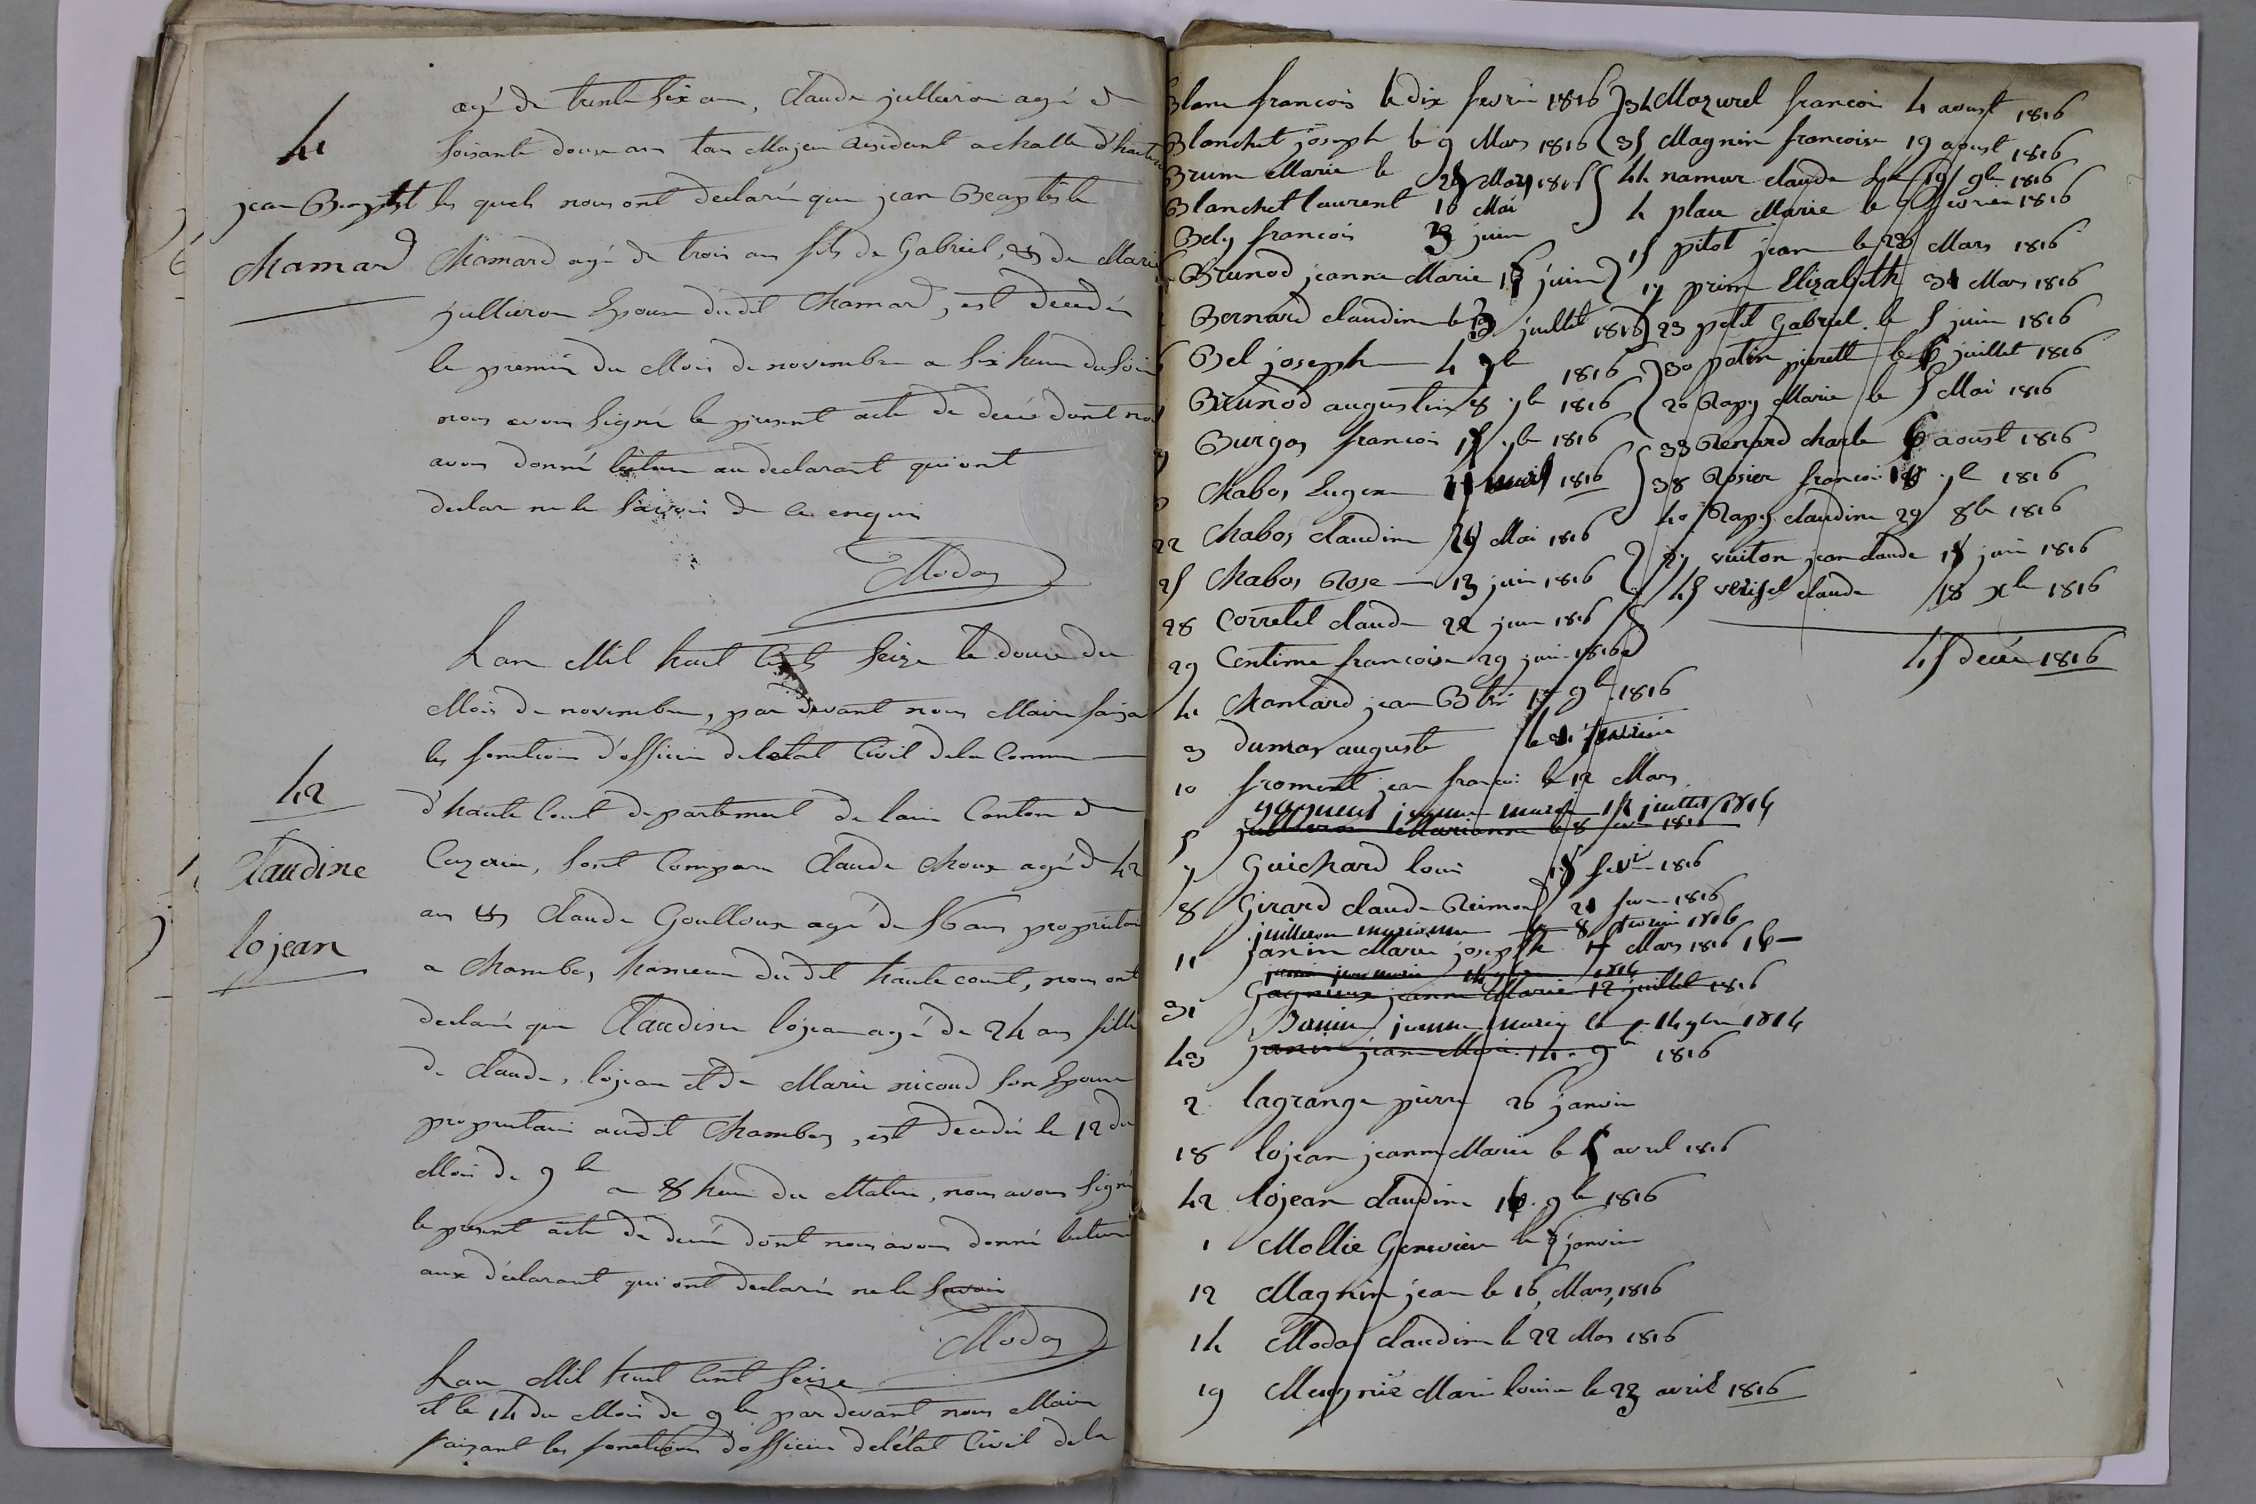 agé de trente six ans, Claude jullieron agé de
soisante douze ans tous Majeur residant a challe d'haute
41
jean Baptist
Chamard
les quels nous ont declaré que jean Beaptiste
Chamard agé de trois ans fils de Gabriel, & de Marie
jullieron Epouse dudit Chamard, est decedé
le premier du Mois de novembre a six heure du soir
nous avons signé le present acte de decé dont nous
avons donné lecture au declarant qui ont
declaré ne le savoir de ce enquis
Modas
Lan Mil huit Cent Seize le douze du
Mois de novembre, par devant nous Maire faisan
les fonctions d'officier deletat Civil dela Commune
42
Claudine
lojean
d'haute Court departement de lain Canton de
Ceyzeria, sont Comparu Claude Choux agé de 42
ans & Claude Goulloux agé de 56 ans proprietair
a Chambos hameau dudit haute court, nous ont
declaré que Claudine lojean agé de 24 ans fille
de Claude, lojean et de Marie nicoud son Epouse
proprietaire audit Chambos, est decedé le 12 du
Mois de 9bre a 8 heure du Matin, nous avons signé
le present acte de decé dont nous avons donné lecture
aux déclarant qui ont declaré ne le savoir
Modas
Lan Mil huit Cent Seize
et le 14 du Mois de 9bre par devant nous Maire
faisant les fonctions d'officier delétat Civil dela
Blanc francois le dix fevrier 1816
Blanchet joseph le 9 Mars 1816
Brun Marie le 25 Mars 1816
Blanchet laurent 16 Mai
Bely francois 3 juin
Brunod jeanne Marie juin
Bernard claudine le 3 juillet 1816
Bel joseph 4 7bre 1816
Brunod augustin 8 7bre 1816
Burgos francois 15 7bre 1816
Chabos Eugene avril 1816
22 Chabos claudine 24 Mai 1816
25 Chabos Rose 13 juin 1816
28 Corretel claude 22 juin 1816
29 Centime francoise 29 juin 1816
41 Chamard jean Bte 1er 9bre 1816
3 dumas auguste le fevrier
10 froment jean francois le 12 Mars
gagneux jeanne marie 12 juillet 1816
5 jullieron Marianne le 8 fevr 1816
7 Guichard louis 15 fevr 1816
8 Girard claude Reimond 21 fevr 1816
jullieron marianne le 8 fevrier 1816
11 janin Marie joseph Mars 1816
31 Gagneux jeanne Marie 12 juillet 1816
janin jeanne marie le 14 9bre 1816
43 janin jeanne Marie 14 9bre 1816
2 lagrange pierre 26 janvier
18 lojean jeanne Marie le 5 avril 1816
42 lojean claudine 9bre 1816
1 Mollie Genevieve le janvier
12 Magnin jean le 16 Mars 1816
14 Modas claudine le 22 Mars 1816
19 Marie louise le 23 avril 1816
34 Mazurel francois 4 aoust 1816
35 Magnin francoise 19 aoust 1816
44 namur claude 9bre 1816
4 place Marie le fevrier 1816
15 pitot jean le 28 Mars 1816
17 prim Elizabeth 31 Mars 1816
23 petit Gabriel le 5 juin 1816
30 potin pierrette le 6 juillet 1816
20 Rapy Marie le 5 Mai 1816
33 Renard charle aoust 1816
38 Rosier francois 7bre 1816
40 Rapy claudine 29 8bre 1816
27 vuiton jean claude juin 1816
45 claude 18 Xbre 1816
45 decé 1816